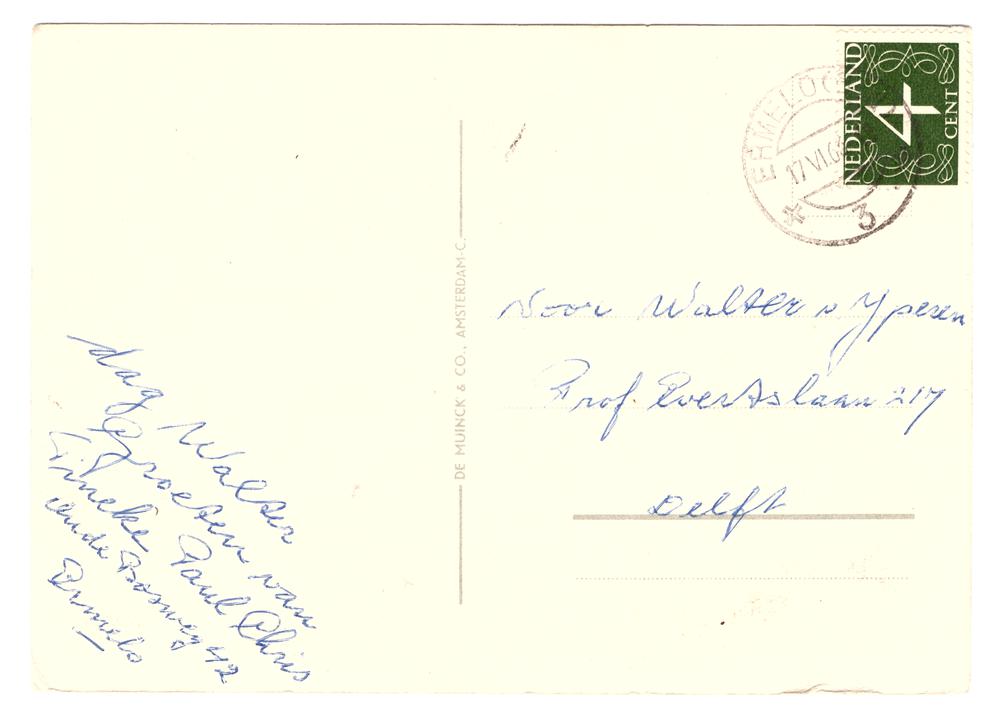 dag Walter
Groeten van
Tineke Paul Chris
Oude Bosweg 42
Ermelo
DE MUINCK & CO., AMSTERDAM-C.
ERMELO
17 VI.6
* 3
NEDERLAND
4
CENT
Voor Walter v Yperen
Prof Evertslaan 217
Delft